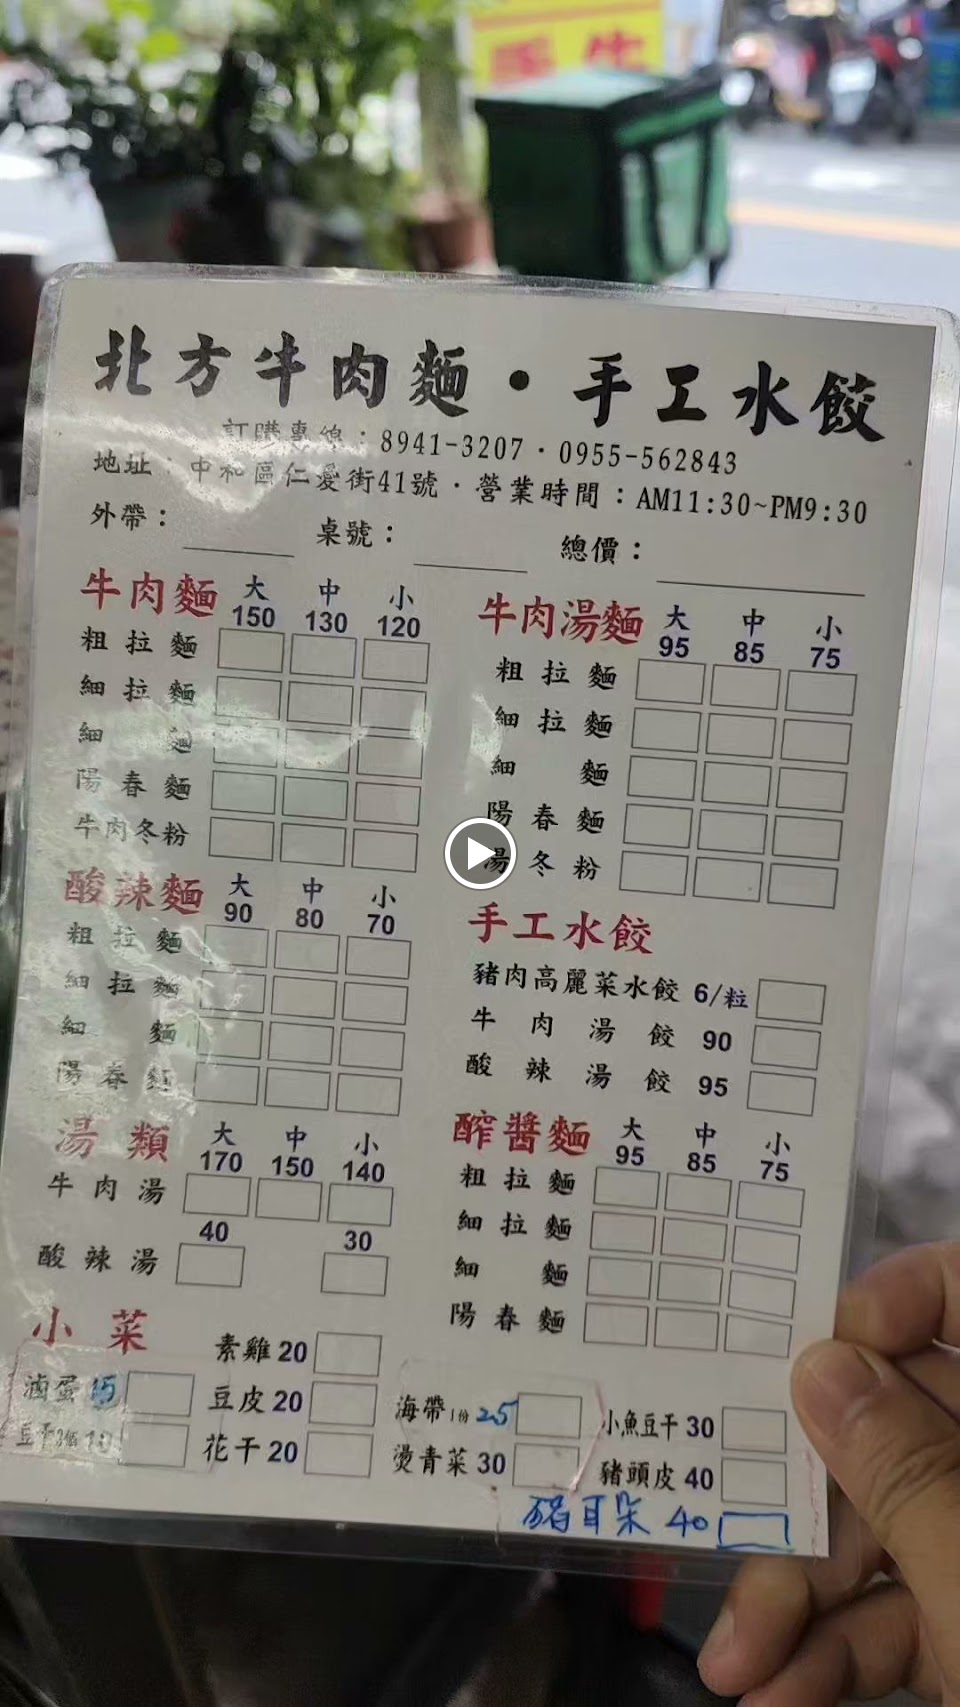 北方牛肉麵·手工水餃
訂購專線：8941-3207·0955-562843
地址：中和區仁愛街41號·營業時間：AM11:30~PM9:30
外帶： 桌號： 總價：
牛肉麵 大 中 小
150 130 120
粗拉麵
細拉麵
細 麵
陽春麵
牛肉冬粉
酸辣麵 大 中 小
90 80 70
粗拉麵
細拉麵
細 麵
陽春麵
湯類 大 中 小
170 150 140
牛肉湯
40 30
酸辣湯
牛肉湯麵 大 中 小
95 85 75
粗拉麵
細拉麵
細 麵
陽春麵
湯冬粉
手工水餃
豬肉高麗菜水餃 6/粒
牛肉湯餃 90
酸辣湯餃 95
醡醬麵 大 中 小
95 85 75
粗拉麵
細拉麵
細 麵
陽春麵
小菜
素雞20
滷蛋15 豆皮20 海帶1份25 小魚豆干30
豆干 花干20 燙青菜30 豬頭皮40
豬耳朵 40